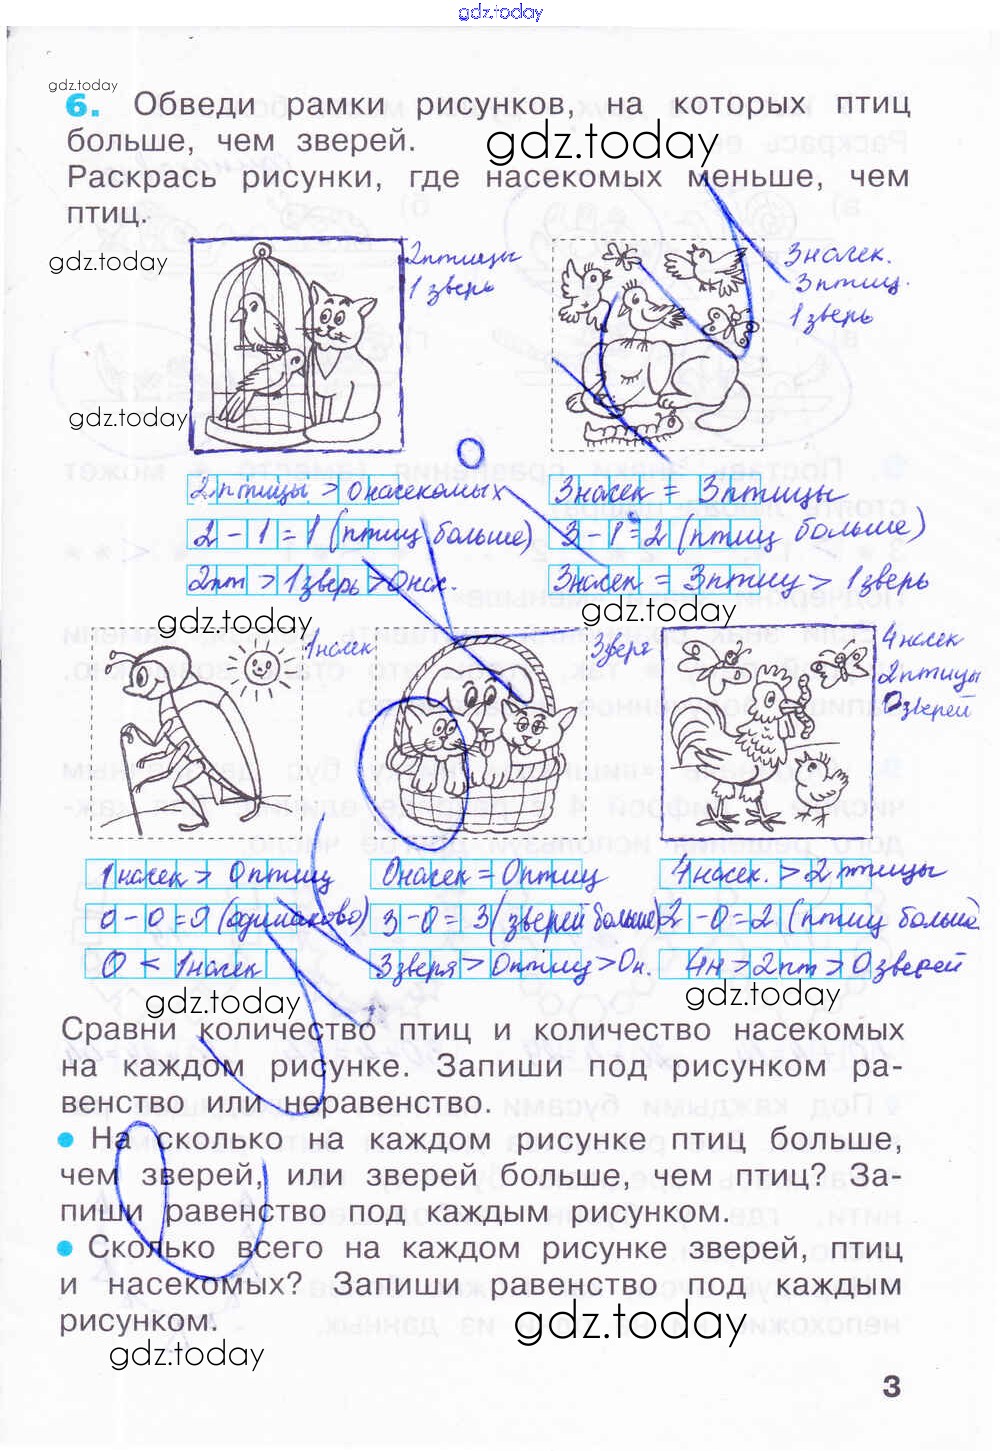 gdz.today
gdz.today
6. Обведи рамки рисунков, на которых птиц
больше, чем зверей.
gdz.today
Раскрась рисунки, где насекомых меньше, чем
птиц.
gdz.today
2птицы
1 зверь
3насек.
3птиц.
1зверь
gdz.today
2птицы > 0насекомых
3насек = 3птицы
2 - 1 = 1 (птиц больше)
3 - 1 = 2 (птиц больше)
2пт > 1зверь > 0нас.
3насек = 3птиц > 1зверь
gdz.today
gdz.today
1насек
3зверя
4насек
2птицы
0зверей
1насек > 0птиц
0насек = 0птиц
4насек. > 2птицы
0 - 0 = 0 (одинаково)
3 - 0 = 3 (зверей больше)
2 - 0 = 2 (птиц больше
0 < 1насек
3зверя > 0птиц > 0н.
4н > 2пт > 0зверей
gdz.today
gdz.today
Сравни количество птиц и количество насекомых
на каждом рисунке. Запиши под рисунком ра-
венство или неравенство.
• На сколько на каждом рисунке птиц больше,
чем зверей, или зверей больше, чем птиц? За-
пиши равенство под каждым рисунком.
• Сколько всего на каждом рисунке зверей, птиц
и насекомых? Запиши равенство под каждым
рисунком.
gdz.today
gdz.today
3